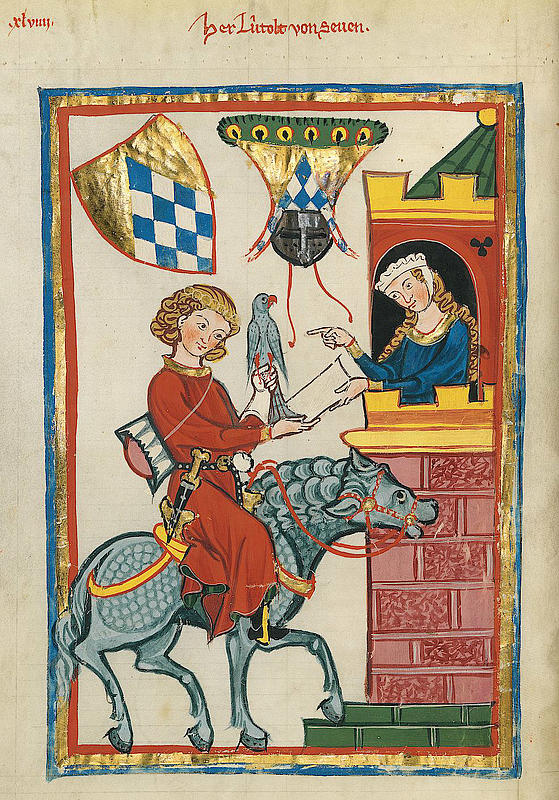 .xlviiij.
Her Lûtolt von Seuen.